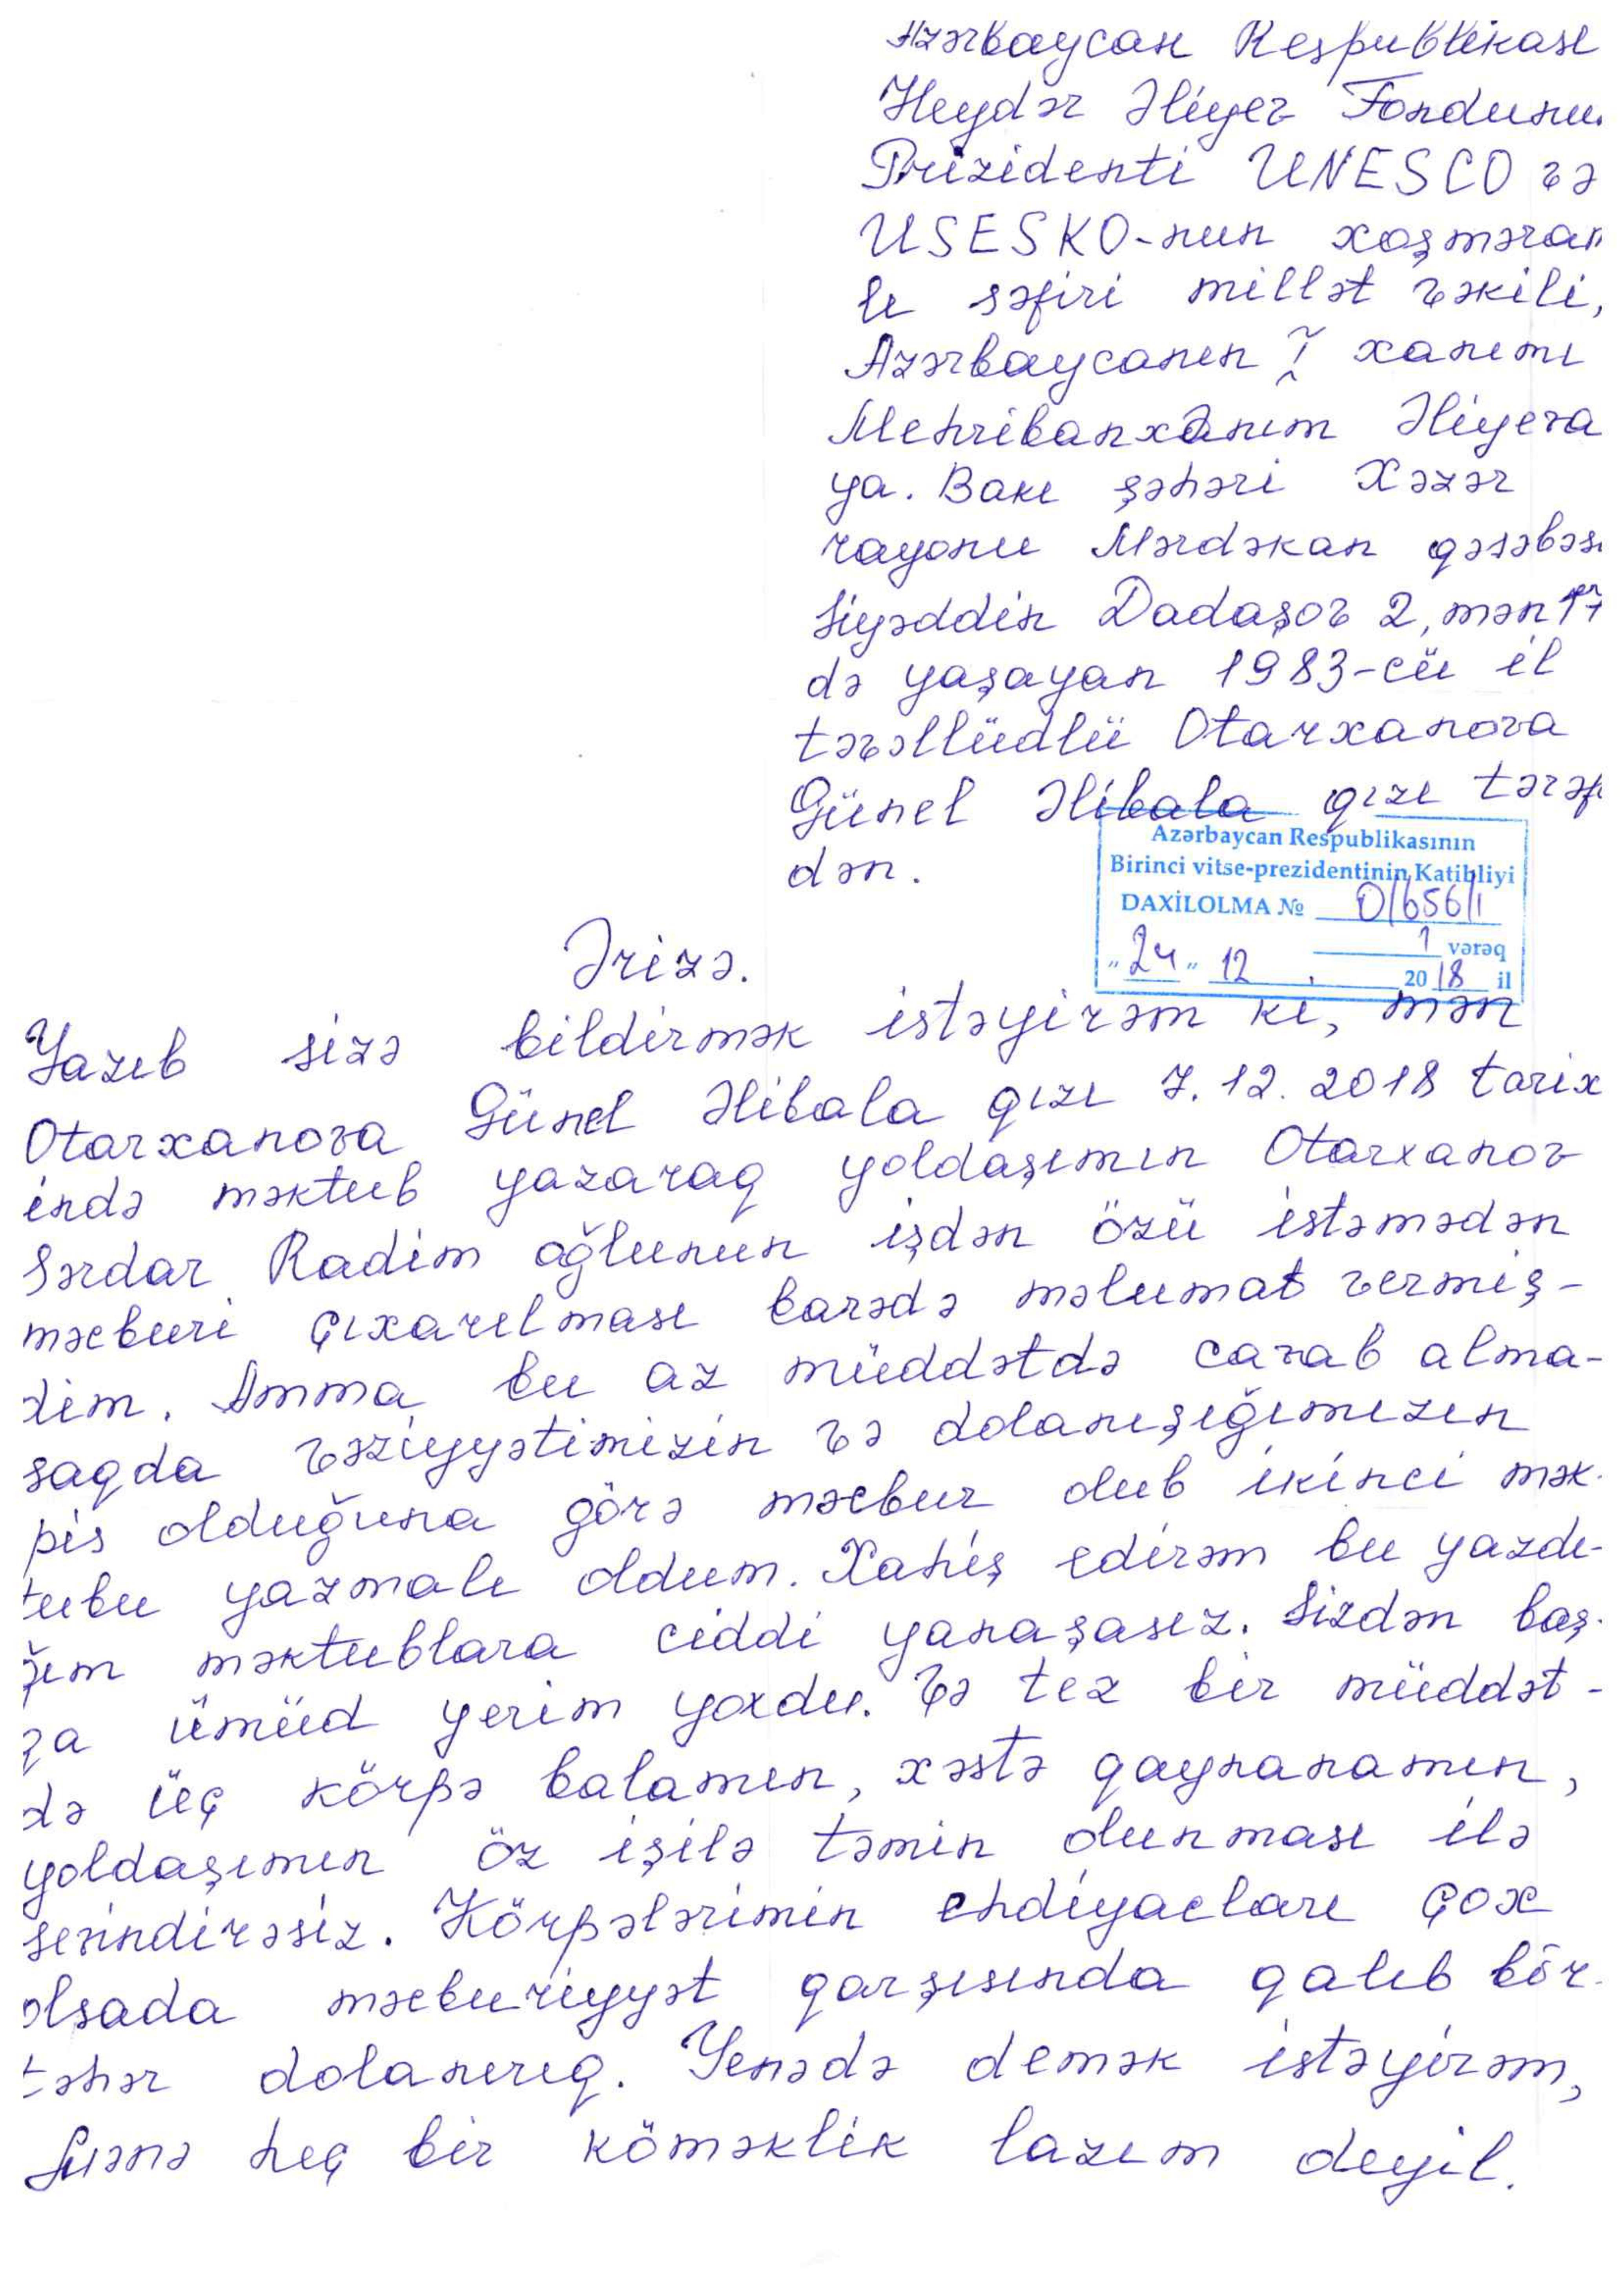 Azərbaycan Respublikası
Heydər Əliyev Fondunu
Prizidenti UNESCO və
USESKO-nun xoşməram
lı səfiri millət vəkili,
Azərbaycanın I xanımı
Mehribanxanım Əliyeva
ya. Bakı şəhəri Xəzər
rayonu Mərdəkan qəsəbəsi
Siyəddin Dadaşov 2, mən 17
də yaşayan 1983-cü il
təvəllüdlü Otarxanova
Günel Əlibala qızı tərəf
dən.
Azərbaycan Respublikasının
Birinci vitse-prezidentinin Katibliyi
DAXİLOLMA № O/656/1
1 vərəq
"24" 12 2018 il
Ərizə.
Yazıb sizə bildirmək istəyirəm ki, mən
Otarxanova Günel Əlibala qızı 7.12.2018 tarix
ində məktub yazaraq yoldaşımın Otarxanov
Sərdar Radim oğlunun işdən özü istəmədən
məcburi çıxarılması barədə məlumat vermiş-
dim. Amma bu az müddətdə cavab alma-
saqda vəziyyətimizin və dolanışığımızın
pis olduğuna görə məcbur olub ikinci mək-
tubu yazmalı oldum. Xahiş edirəm bu yazdı-
ğım məktublara ciddi yanaşasız. Sizdən baş-
qa ümüd yerim yoxdu. Və tez bir müddət-
də üç körpə balamın, xəstə qaynanamın,
yoldaşımın öz işilə təmin olunması ilə
sevindirəsiz. Körpələrimin ehdiyacları çox
olsada məcburiyyət qarşısında qalıb bir-
təhər dolanırıq. Yenədə demək istəyirəm,
Mənə heç bir köməklik lazım deyil.